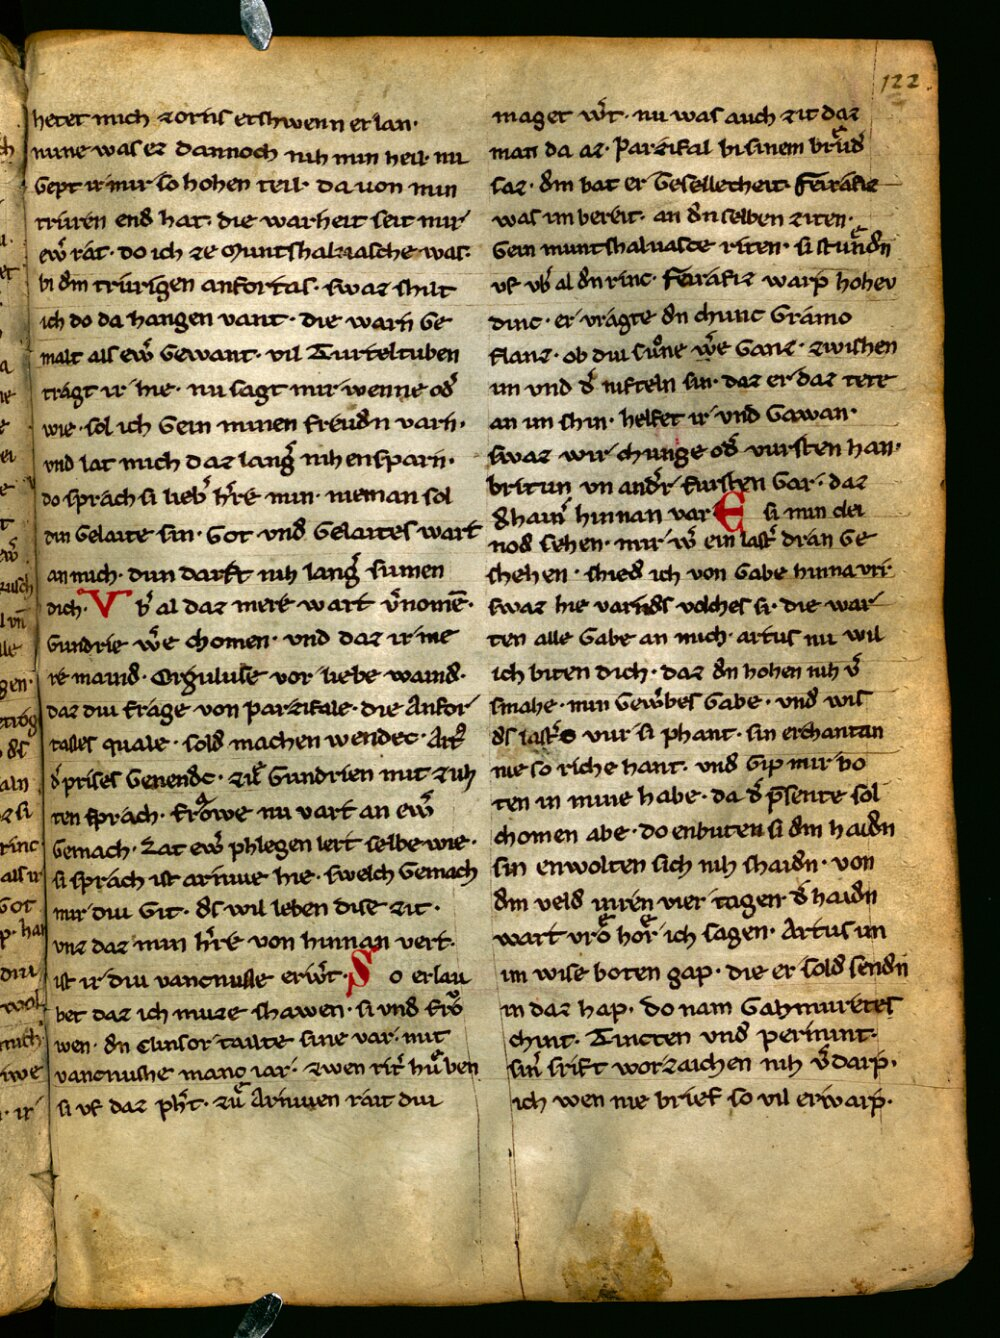 122.
hetet mich zornis etshwenn erlan·
nune was ez dannoch niht min heil· nu
Gept ir mir so hohen teil· da von min
truren end hat· die warheit seit mir
ew̄ rat· do ich ze Muntshalzasche was·
bi dm trurigen anfortas· swaz shilt
ich do da hangen vant· die warn Ge
malt als ew̄ Gewant· vil Turteltuben
tragt ir hie· nu sagt mir wenne od̄
wie· sol ich Gein minen freudn varn·
und lat mich daz lanḡ niht ensparn·
do sprach si lieb̄ h̄re min· nieman sol
din Gelaite sin· Got und Gelaites wart
an mich· dun darft niht lanḡ sumen
dich· V b̄ al daz mere wart v̄nomē·
Gundrie w̄e chomen· und daz ir me
re maind· Orguluse vor liebe waind·
daz diu frage von parzifale· die Anfor
tasses quale· sold machen wendec· Art̄
d̄ prises Genendc· zū Gundrien mit zuh
ten sprach· frowe nu vart an ew̄
Gemach· Lat ew̄ phlegen lert selbe wie·
si sprach ist arniue hie· swelch Gemach
mir diu Git· ds wil leben dise zit·
unz daz min h̄re von hinnan vert·
ist ir diu vancnusse erw̄t· S o erlau
bet daz ich muze shawen· si und fro
wen· dn Clinsor tailte sine var· mit
vancnushe manc iar· zwen rit̄ hůben
si uf daz pht̄· zů Arniuen rait diu
maget w̄t· nu was auch zit daz
man da az· Parzifal bi sinem brůd̄
saz· dm bat er Gesellecheit· feirafiz
was im bereit· an dn selben ziten·
Gein muntshaluasce riten· si stůndn
uf ub̄ al dn rinc· feirafiz warp hoheu
dinc· er vragte dn chunc Gramo
flanz· ob diu sůne w̄e Ganz· zwishen
im und d̄ nifteln sin· daz er daz tete
an im shin· helfet ir und Gawan·
swaz wir chunige od̄ vursten han·
britun un and̄r fursten Gar· daz
dhain̄ hinnan var E si min clei
nod sehen· mir w̄ ein last̄ dran Ge
shehen· shied ich von Gabe hinna vri·
swaz hie varnds volches si· die war
ten alle Gabe an mich· artus nu wil
ich biten dich· daz dn hohen niht v̄
smahe· min Gew̄bes Gabe· und wis
ds last̄s vur si phant· sin erchantan
nie so riche hant· und Gip mir bo
ten in mine habe· da d̄ p̄sente sol
chomen abe· do enbuten si dm haidn
sin enwolten sich niht shaidn· von
dm veld inren vier tagen d̄ haidn
wart vro hor ich sagen· Artus im
im wise boten gap· die er sold sendn
in daz hap· do nam Gahmuretes
chint· Tincten und permint·
sin̄ srift worzaichen niht v̄darp·
ich wen nie brief so vil erwarp·